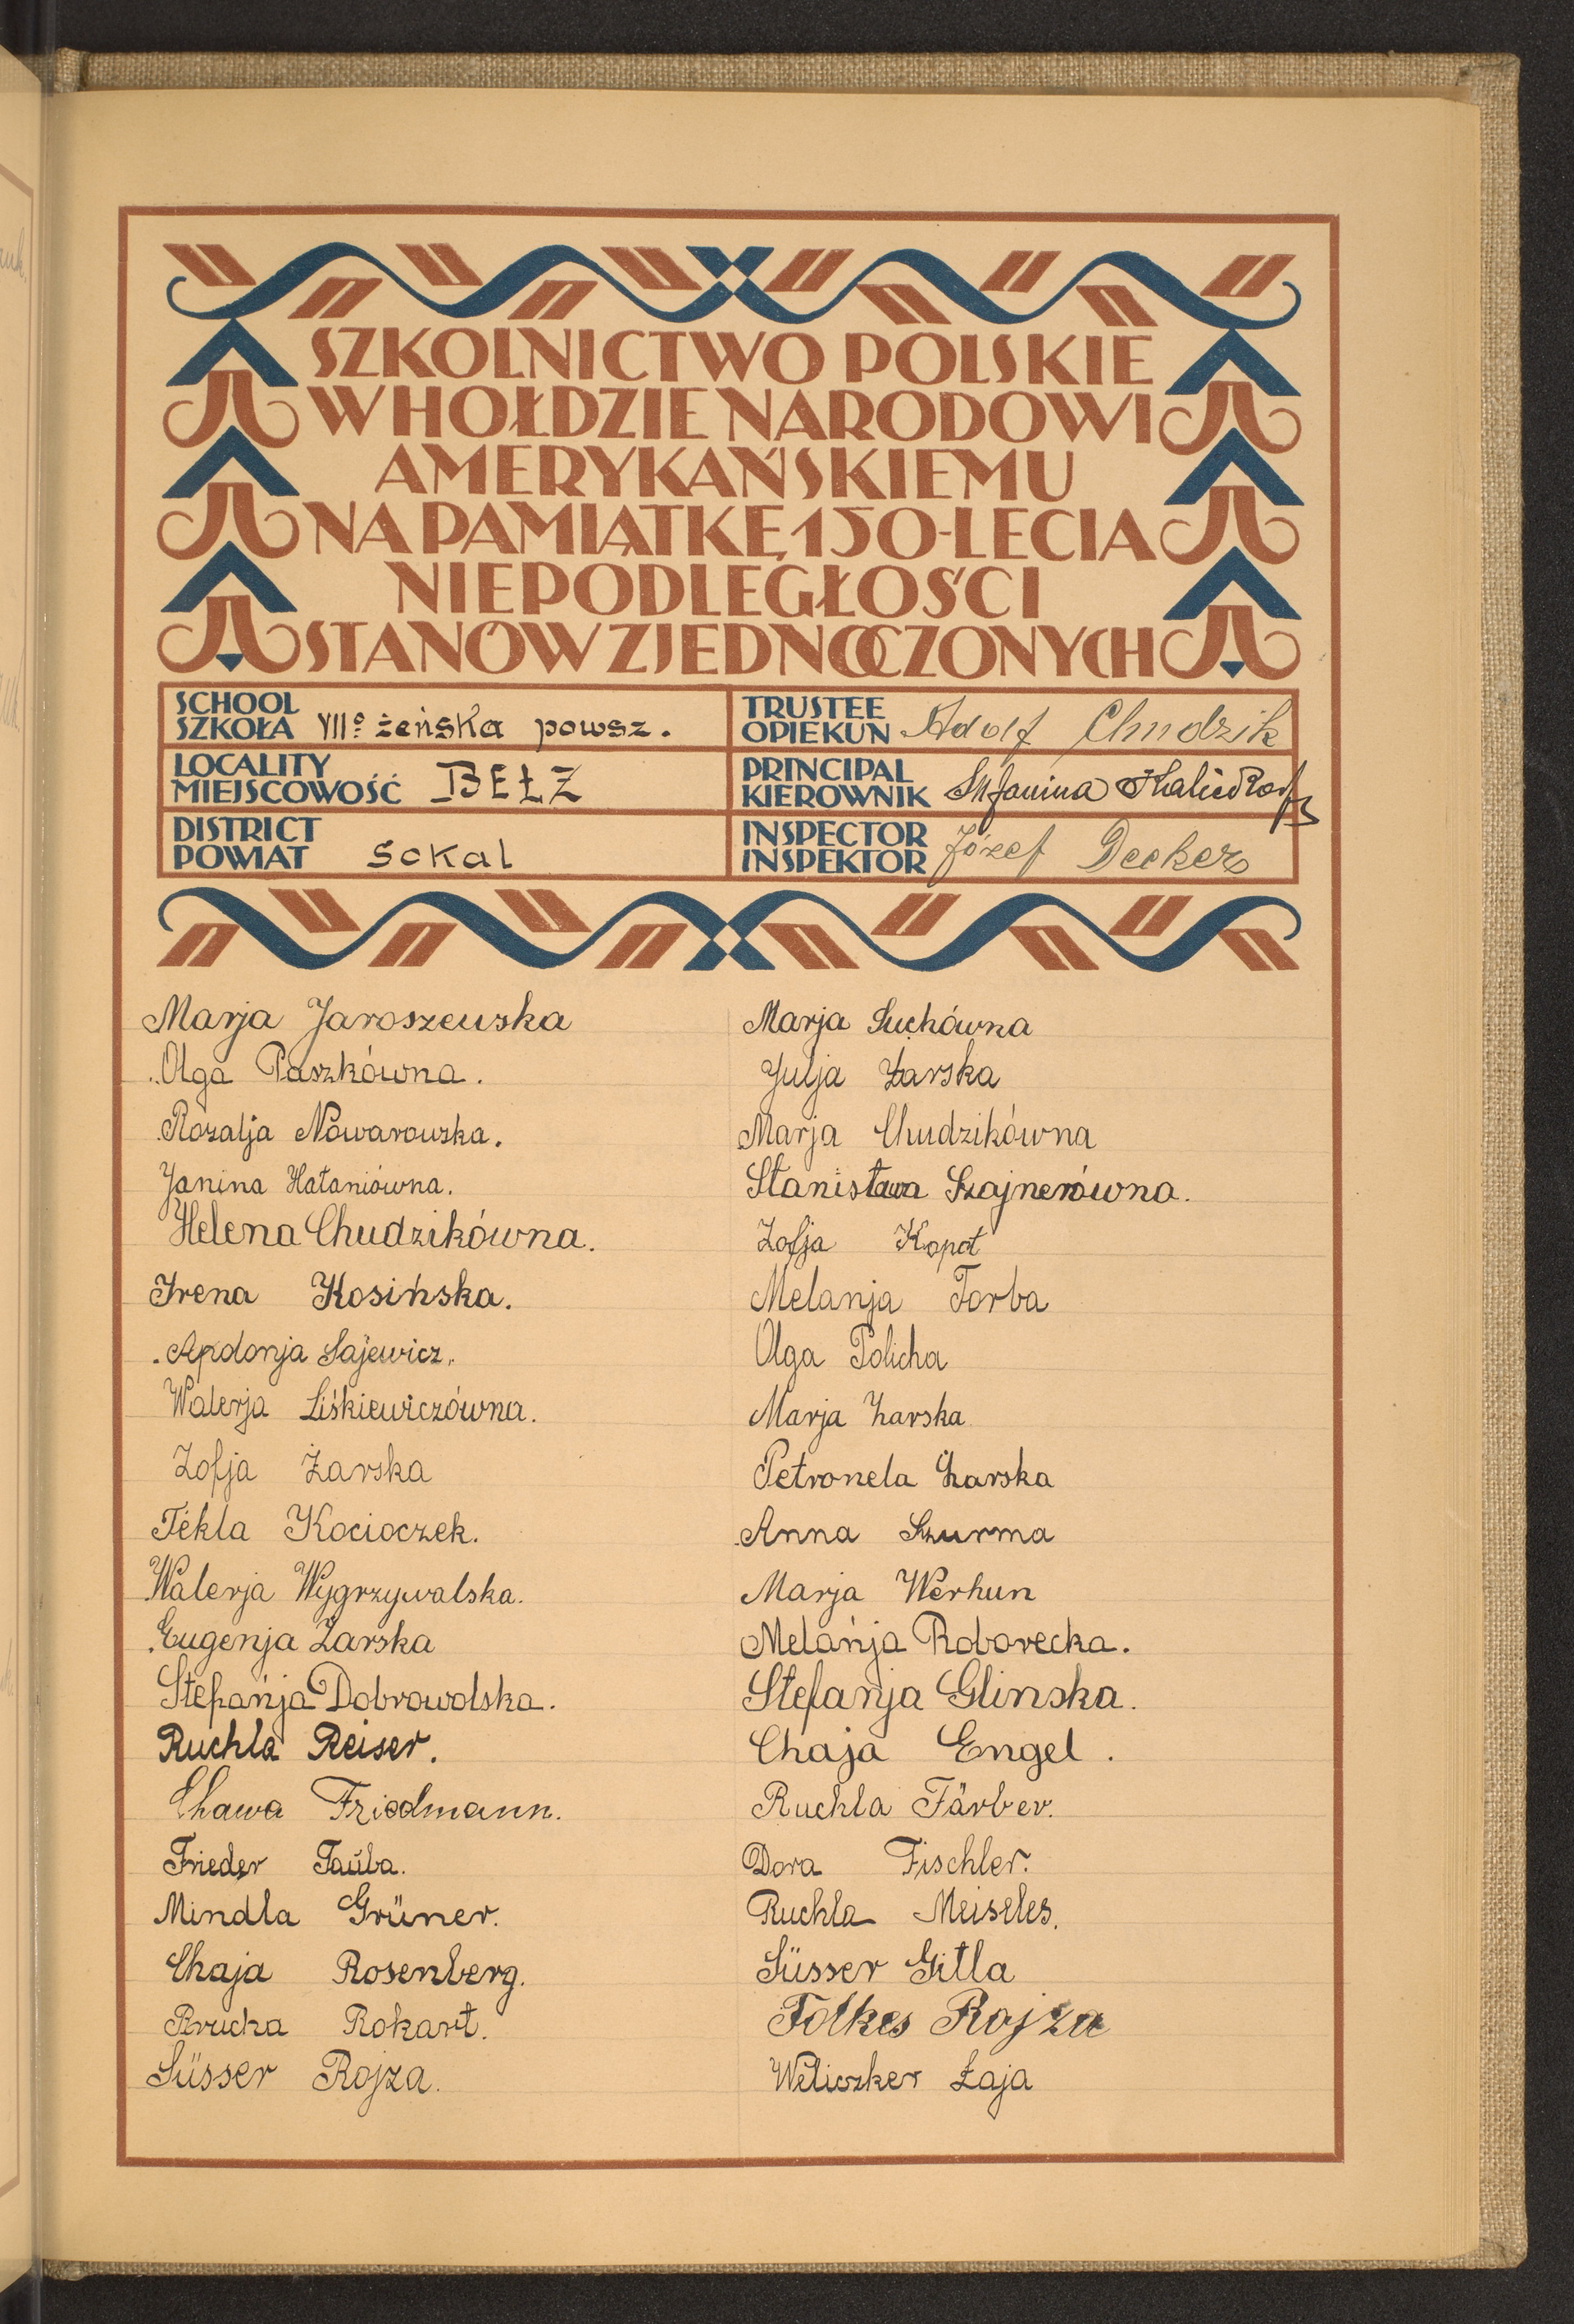 SZKOLNICTWO POLSKIE
W HOŁDZIE NARODOWI
AMERYKAŃSKIEMU
NA PAMIĄTKĘ 150-LECIA
NIEPODLEGŁOŚCI
STANÓW ZJEDNOCZONYCH
SCHOOL
SZKOŁA VII° żeńska powsz.
TRUSTEE
OPIEKUN Adolf Chudzik
LOCALITY
MIEJSCOWOŚĆ BEŁZ
PRINCIPAL
KIEROWNIK
DISTRICT
POWIAT Sokal
INSPECTOR
INSPEKTOR Józef Decker
Marja Jaroszewska
Olga Paszkówna.
Rozalja Nowarowska.
Janina Hałaniówna.
Helena Chudzikówna.
Irena Kosińska.
Apolonja Sajewicz.
Walerja Liśkiewiczówna.
Zofja Żarska
Tekla Kocioczek.
Walerja Wygrzywalska.
Eugenja Żarska
Stefanja Dobrowolska.
Ruchla Reiser.
Chawa Friedmann.
Frieder Tauba.
Mindla Grüner.
Chaja Rosenberg.
Brucha Rokart.
Süsser Rojza.
Marja Suchówna
Julja Żarska
Marja Chudzikówna
Stanisława Szajnerówna.
Zofja Kopot
Melanja Torba
Olga Policha
Marja Żarska
Petronela Żarska
Anna Szurma
Marja Werhun
Melanja Roborecka.
Stefanja Glinska.
Chaja Engel.
Ruchla Färber.
Dora Fischler.
Ruchla Meiseles.
Süsser Gitla
Folkes Rojza
Weliczker Łaja